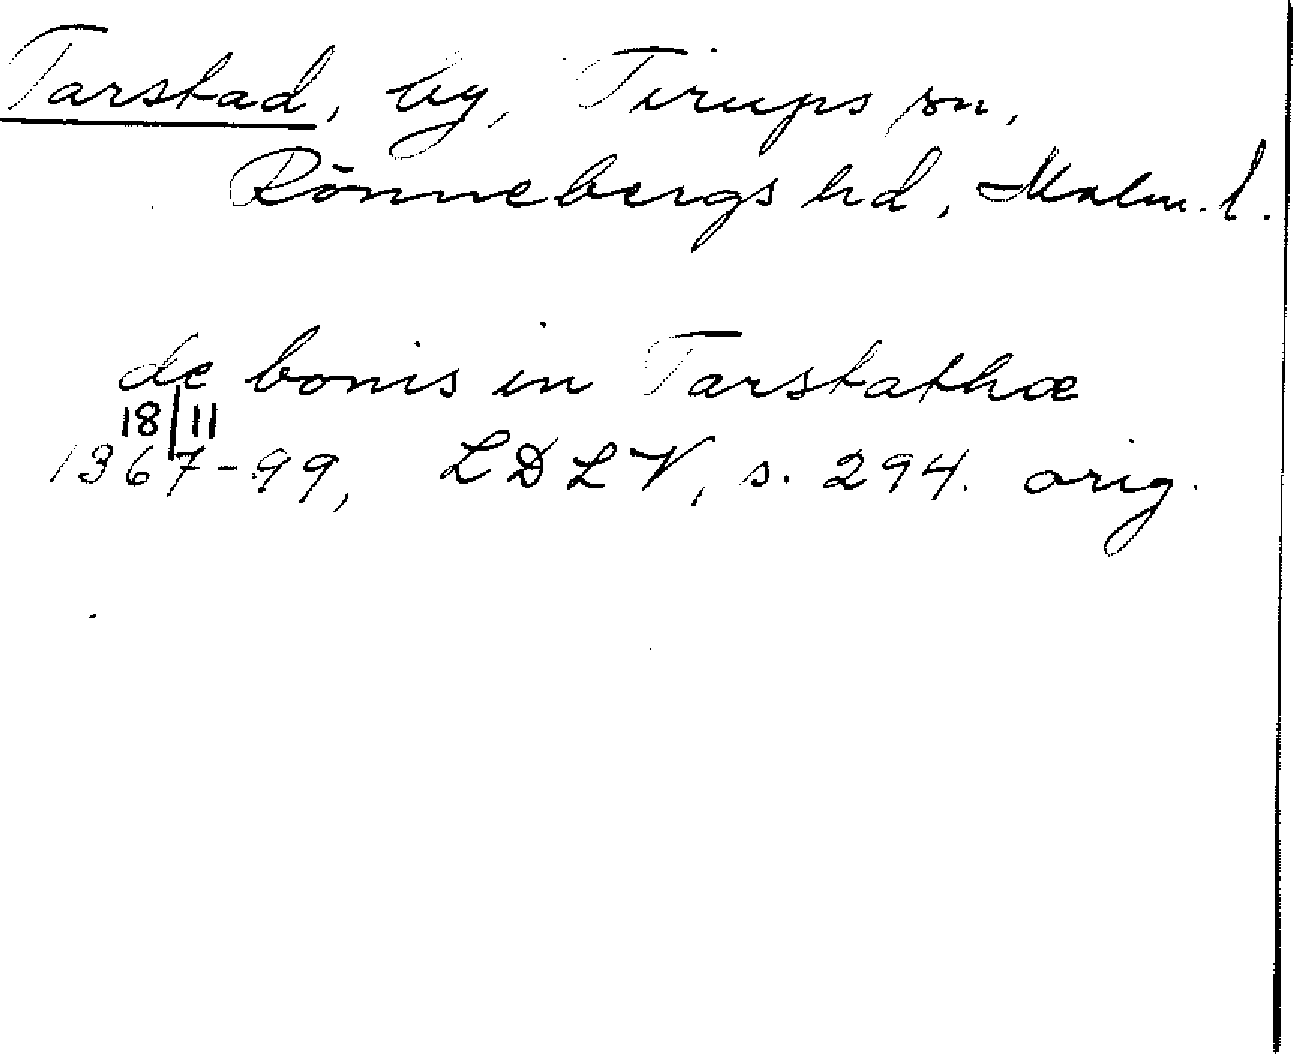 Tarstad, by, Tirups sn,
Rönnebergs hd, Malm. l.
de bonis in Tarstathæ
18/11
1367-99, LDLV, s. 294. orig.